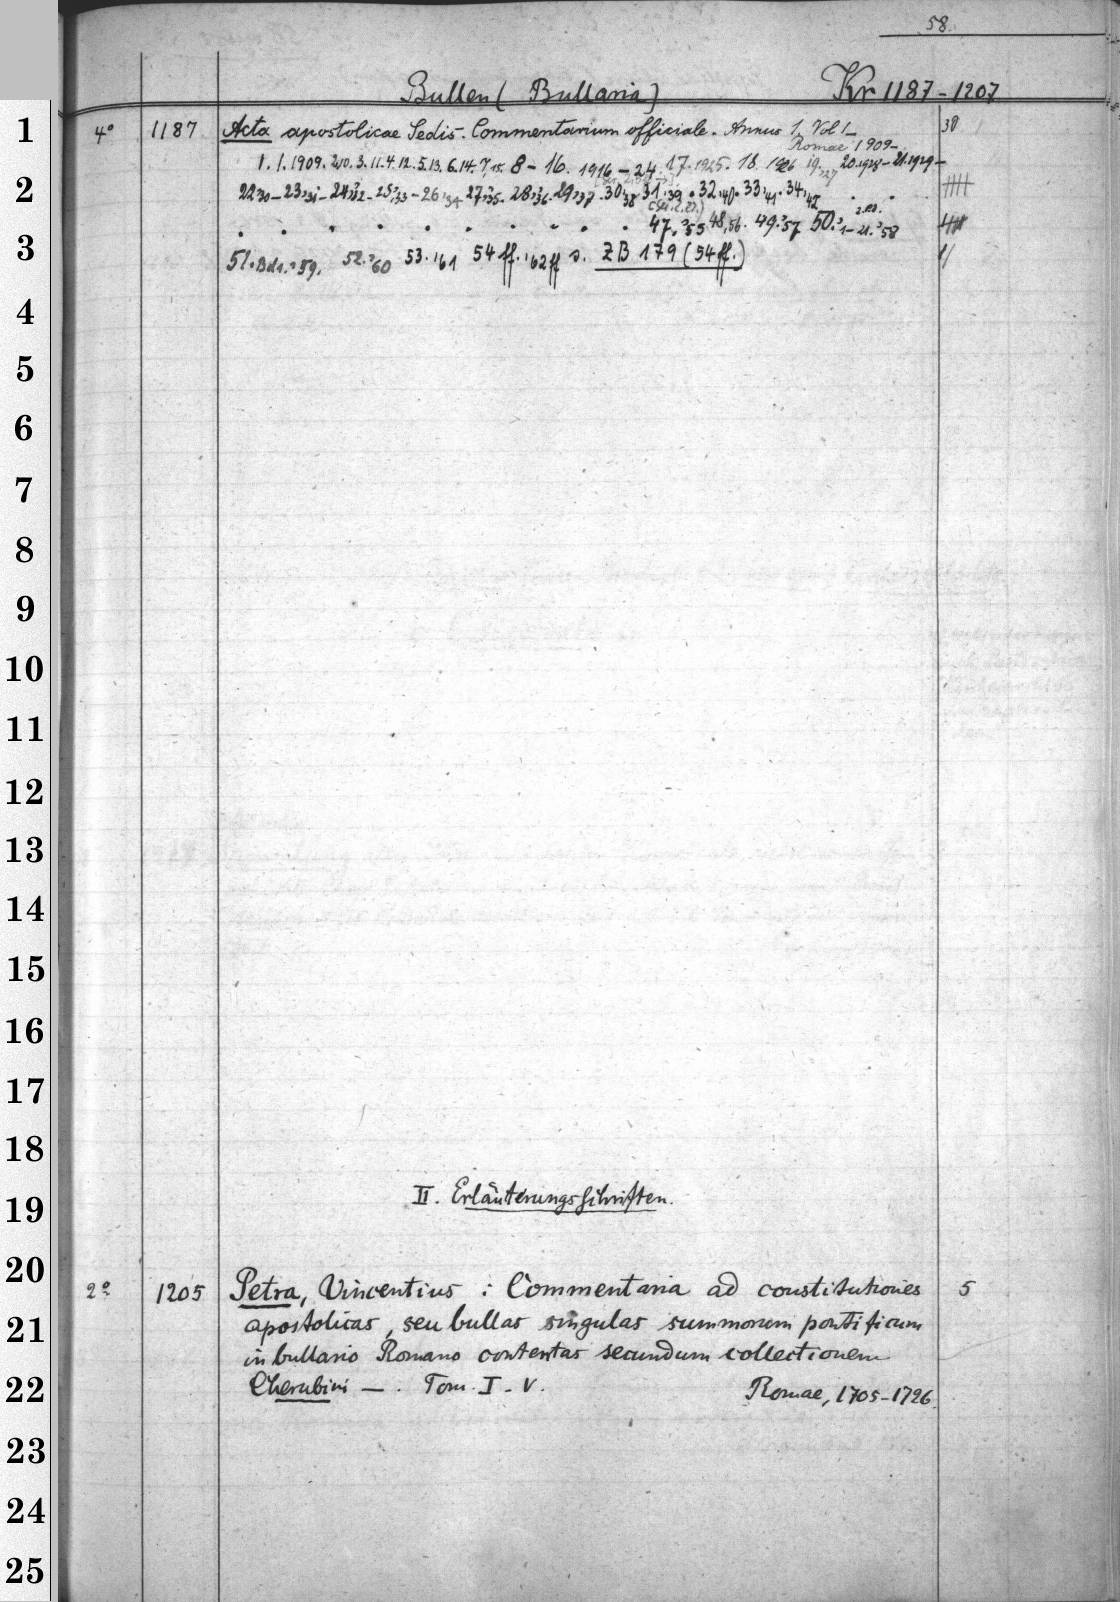 58.
Bullen (Bullaria) Kr 1187-1207
1 4° 1187 Acta apostolicae Sedis. Commentarium officiale. Annus 1, Vol 1_ 38
Romae 1909-
1. 1.1909. 3. 11. 4. 12. 5. 13. 6. 14. 7, 15. 8 - 16. 1916 - 24. 17. 1925. 18. 1926 19. 27 20.1928 - 21.1929 -
2 22. 30 - 23. 31 - 24. 32 - 25. 33 - 26. 34 27. 35. 28. 36. 29. 37. 30. 38 31. 39. 32. 40. 33. 41. 34. 42
(Ser. 2. 27.)
. . . . . . . . . . 47. '55 48, 56. 49. '57 50. 1 - 21. '58
3 51. Bd 1. '59. 52. '60 53. '61 54 ff. '62 ff s. ZB 179 (54 ff.)
4
5
6
7
8
9
10
11
12
13
14
15
16
17
18
19 II. Erläuterungsschriften.
20 2° 1205 Petra, Vincentius : Commentaria ad constitutiones 5
21 apostolicas, seu bullas singulas summorum pontificum
in bullario Romano contentas secundum collectionem
22 Cherubini — . Tom. I - V. Romae, 1705-1726
23
24
25